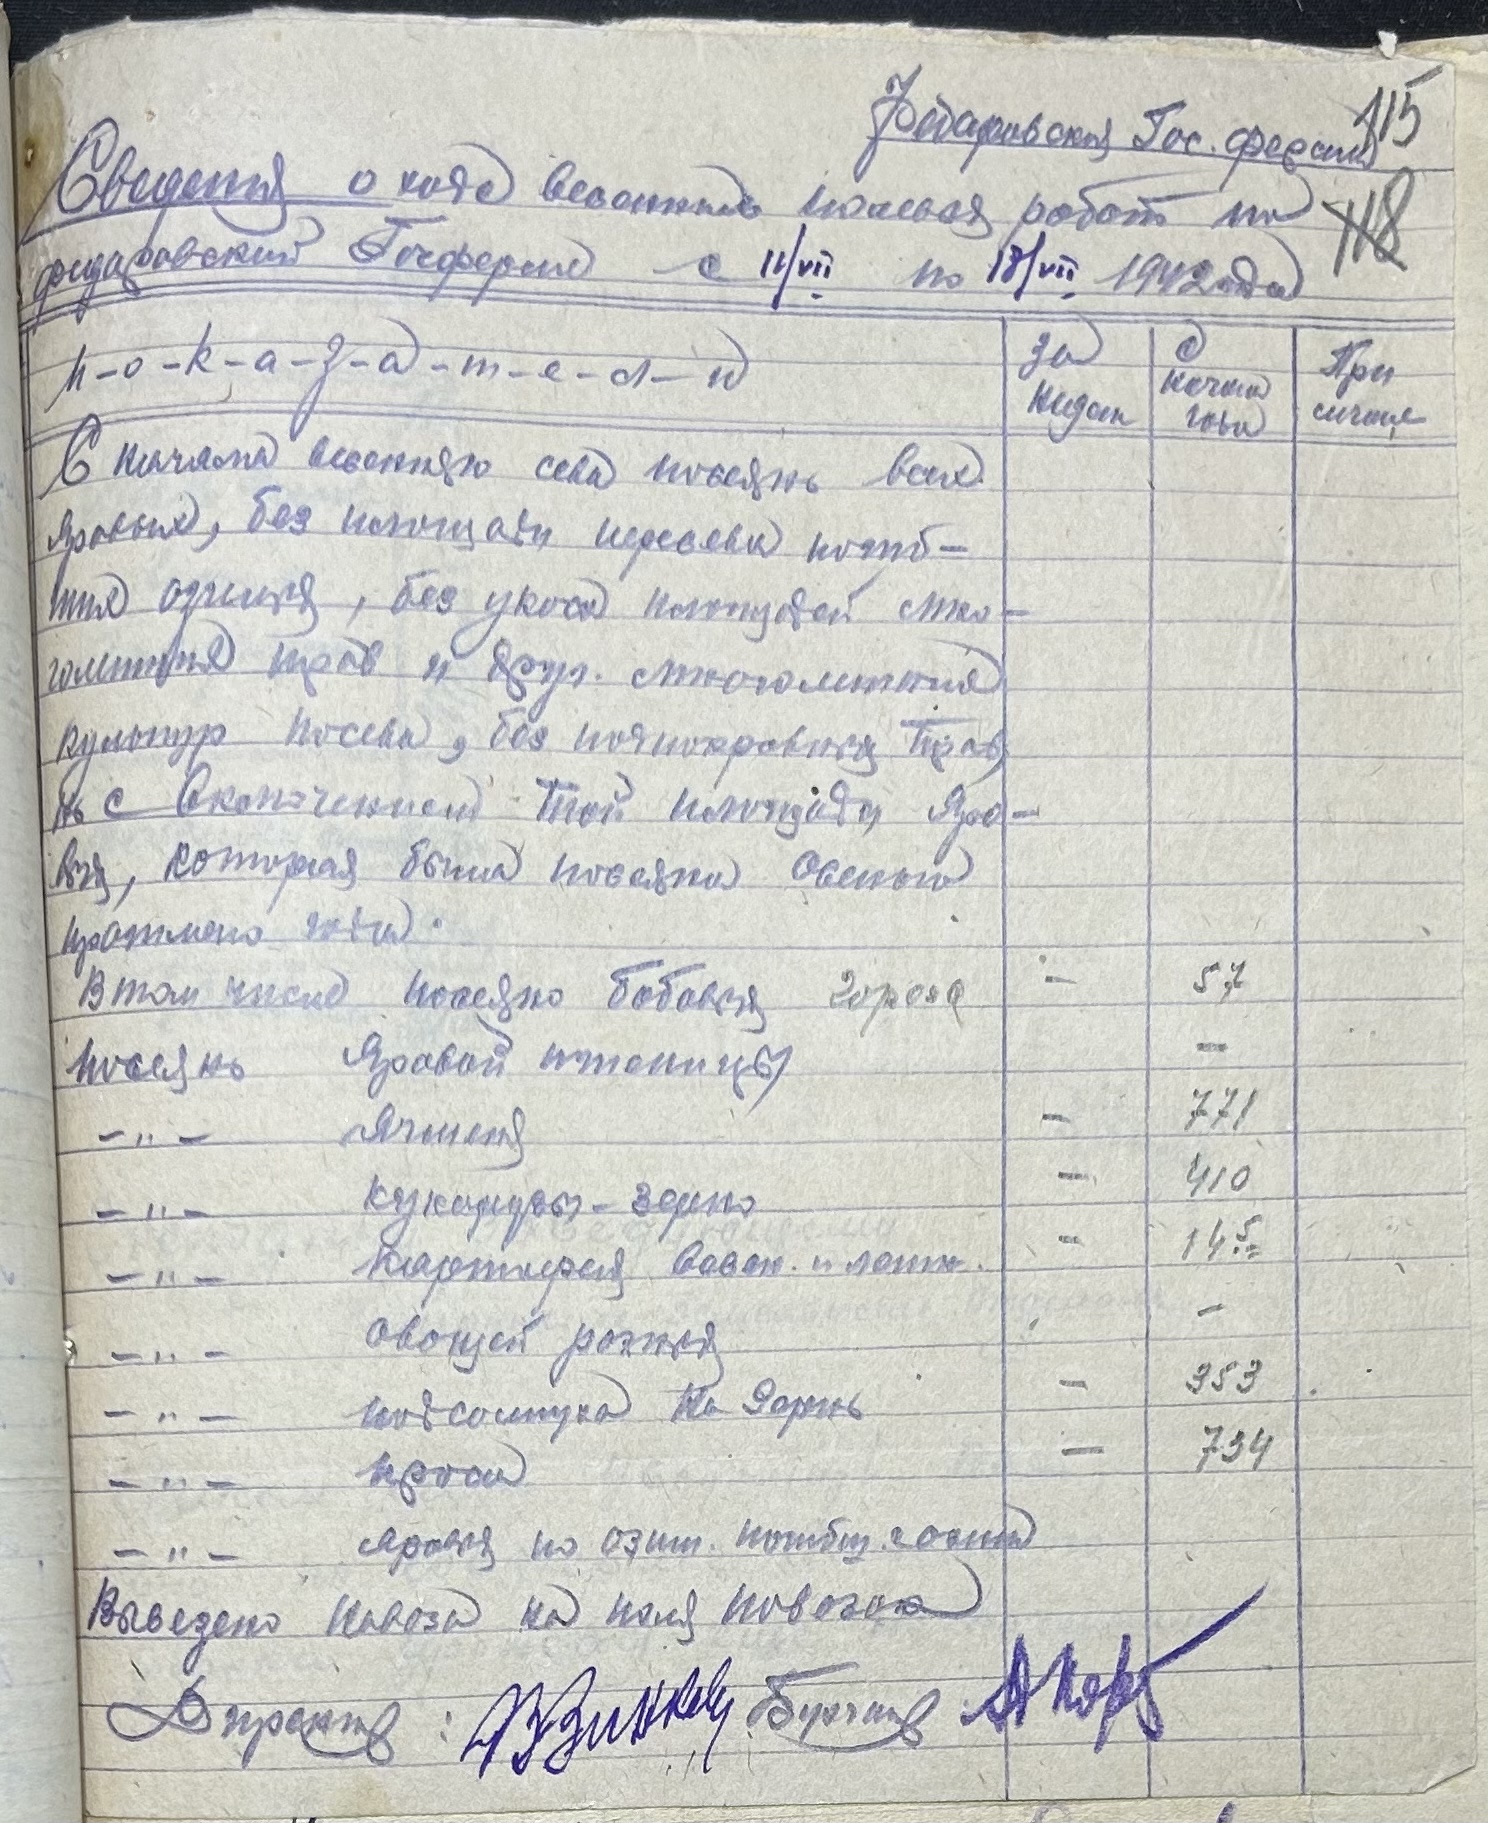 115
Федаровская Гос. ферма
118
Сведения о ходе весенных полевых работ по
федаровский Госферме с 11/VII по 18/VII 1942 года
п-о-к-а-з-а-т-е-л-и
За недел
С начала года
При мечание
С начала весенняго сева посеянь всех
яровых, без площади пересева погиб-
ших озимых, без укоса площадей мно-
голетних трав и друг. многолетних
культур посева, без подпокровных трав,
но с включением той площади яро-
вых, которая была посеяна осенью
прошлого года.
В том числе посеяно бобовых гороха - 57
посеянь Яровой пшеницы -
-"- Ячменя - 771
-"- кукорузы - зерно - 410
-"- картофеля весен. и летн. - 14.5
-"- овощей разных -
-"- подсолнуха на зернь - 353
-"- проса - 734
-"- яровых по озим. погибш. осенью
Вывезено навоза на поля повозок
Директор: Бухгалтер: